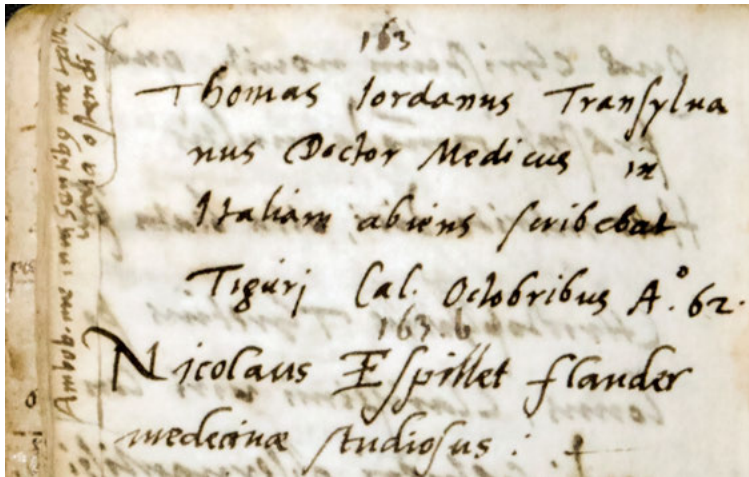 163
Thomas Iordanus Transylua
nus Doctor Medicus in
Italiam abiens scribebat
Tigurj Cal. Octobribus A.° 62.
163.b
Nicolaus Espillet flander
medecinæ studiosus :